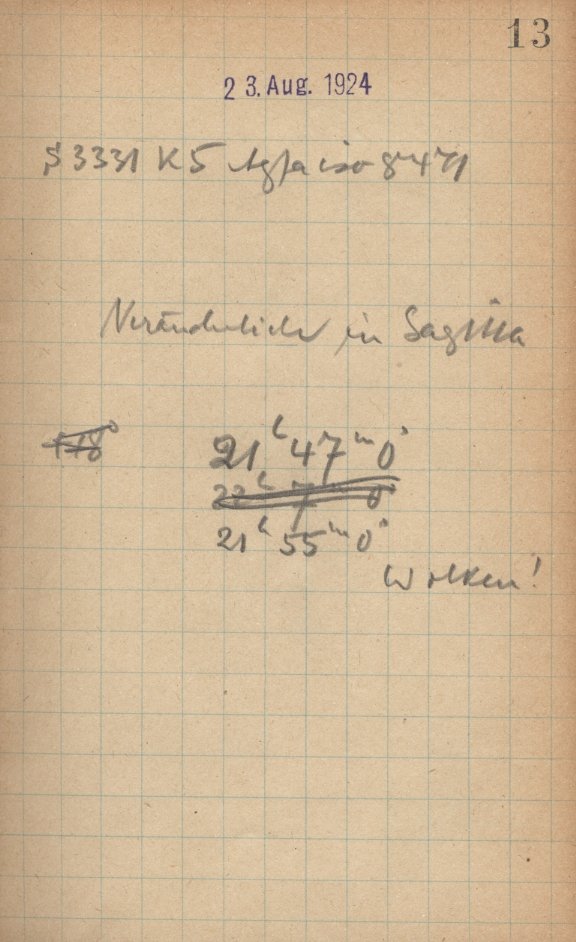 13
23. Aug. 1924
S 3331 K5 Agfa iso 8471
Veränderlicher in Sagitta
+18°
21h 47m 0s
22h 7m 0s
21h 55m 0s
Wolken!